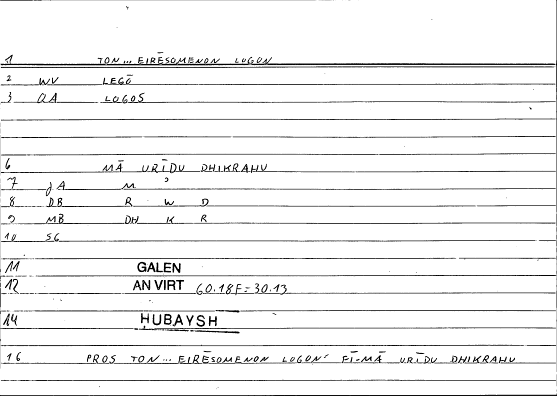 1 TON... EIRĒSOMENON LOGON
2 WV LEGŌ
3 QA LOGOS
6 MĀ URĪDU DHIKRAHU
7 JA M ʾ
8 DB R W D
9 MB DH K R
10 SG
11 GALEN
12 AN VIRT 60.18F=30.13
14 ḤUBAYSH
16 PROS TON... EIRĒSOMENON LOGON' FĪ-MĀ URĪDU DHIKRAHU